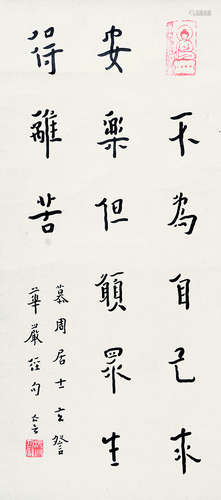 不為自己求
安樂但願眾生
得離苦
慕周居士玄詧
華嚴經句